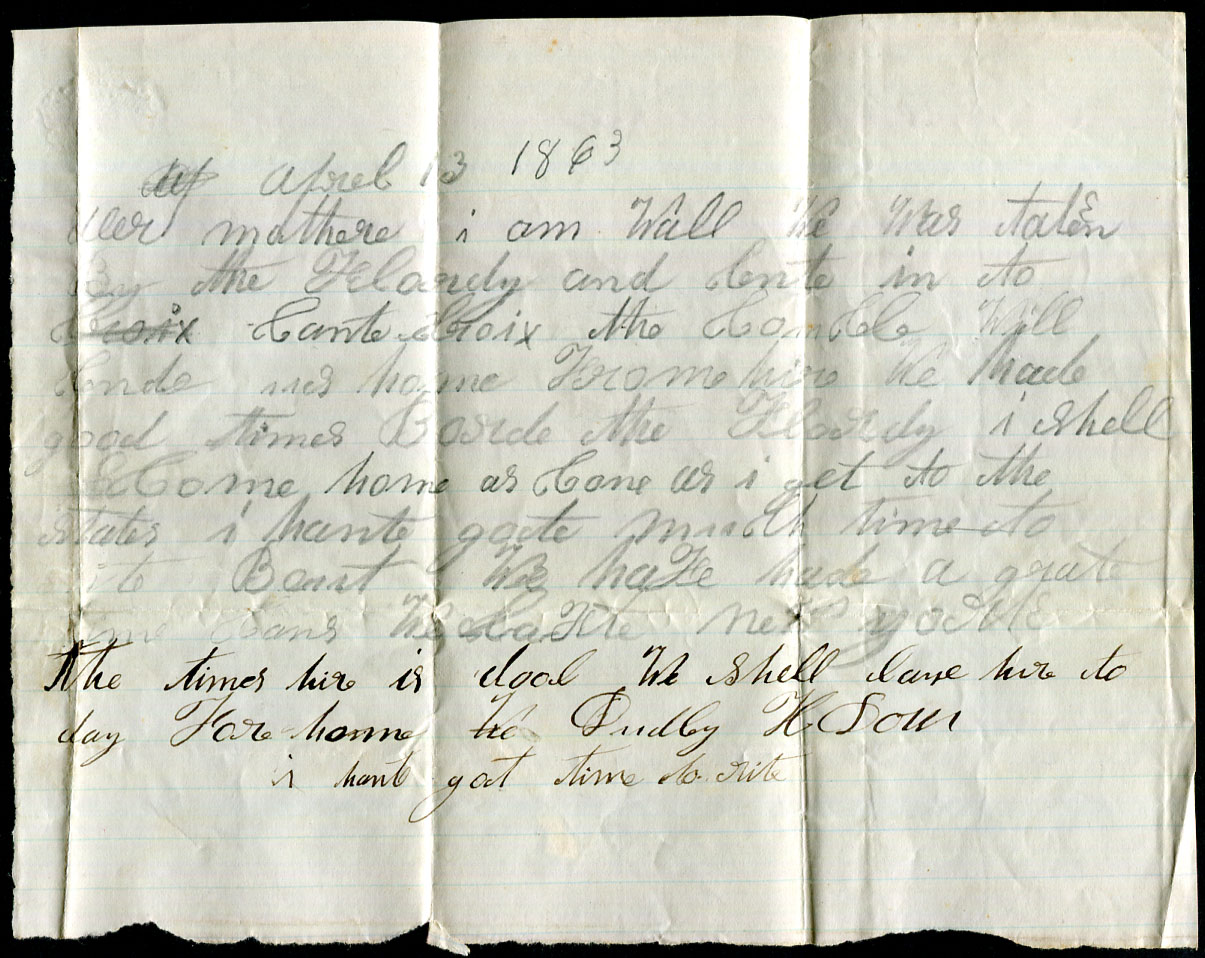 April 13 1863
Deer mathere i am Wall We Was taken
By the Floardy and Cente in to
Croix Cante Croix the Conscle Will
Cende us home Frome hire We hade
good times Boarde the Floardy i shell
Come home as Cone as i get to the
states i hante gote much time to
rite Boaut We haFe hade a grate
time Cans We laFte new yorke
The times hire is dool We shell leave hire to
day Fore home We Dudley H Sour
i hante got time to rite